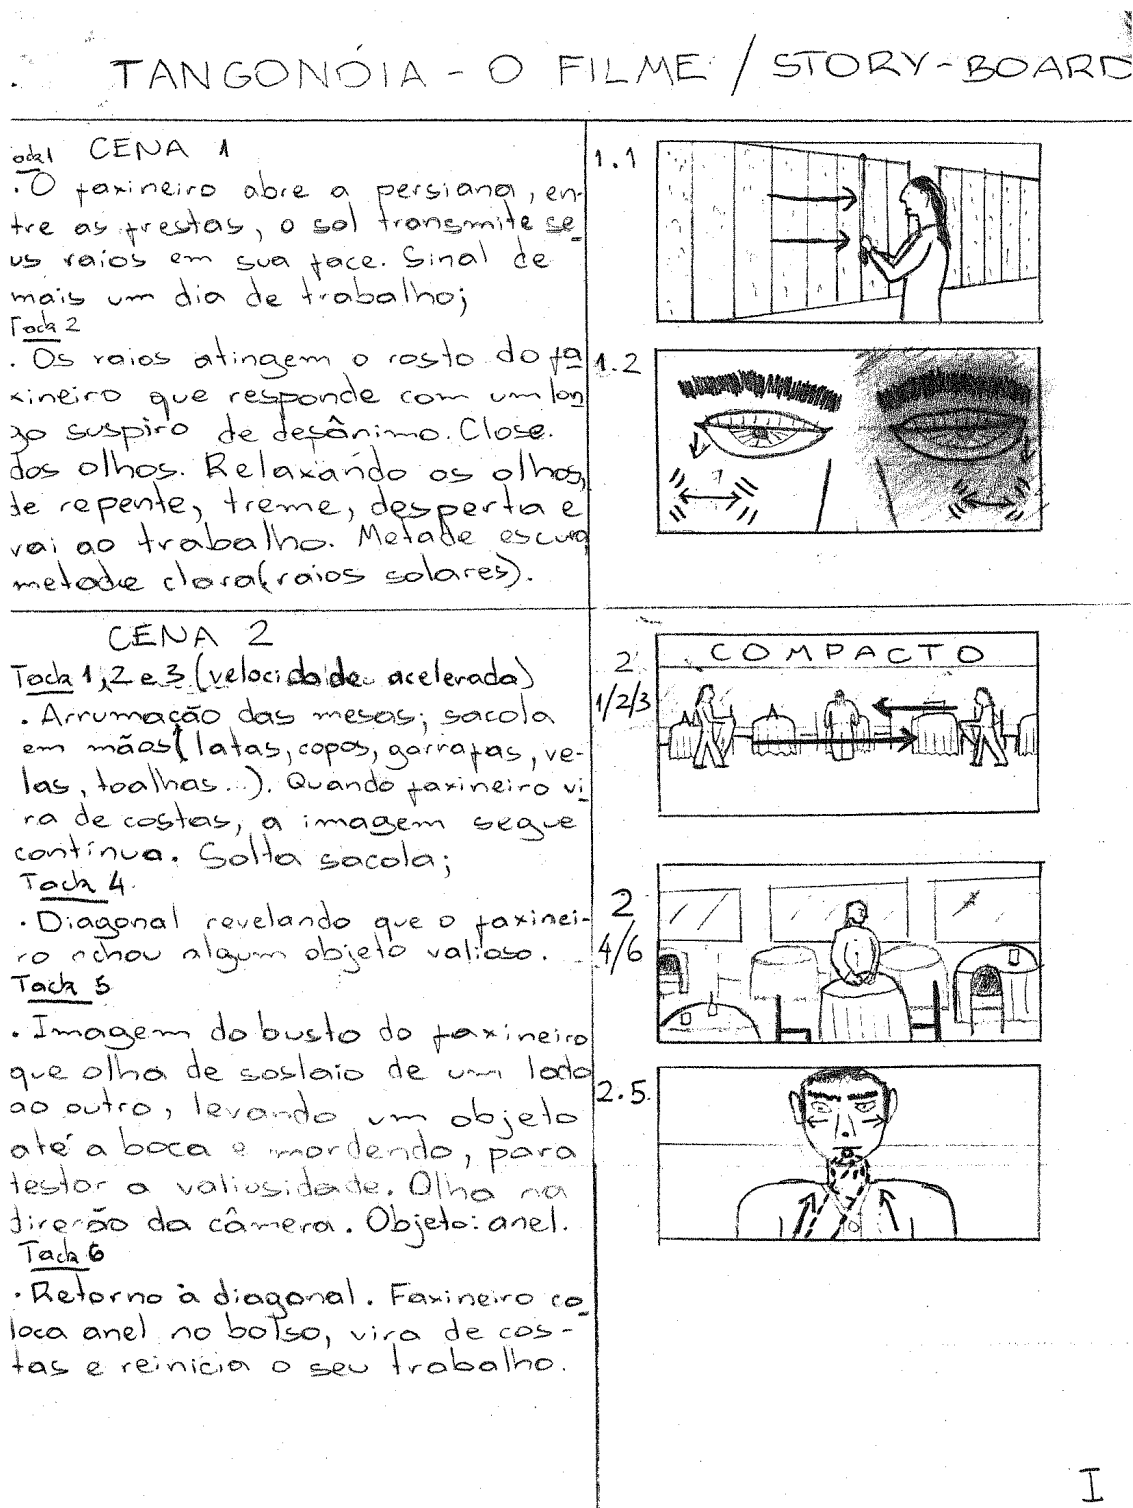 TANGONÓIA - O FILME / STORY-BOARD
CENA 1
. O faxineiro abre a persiana, en-
tre as frestas, o sol transmite se
us raios em sua face. Sinal de
mais um dia de trabalho;
Tack 2
. Os raios atingem o rosto do fa
xineiro que responde com um lon
go suspiro de desânimo. Close.
dos olhos. Relaxando os olhos,
de repente, treme, desperta e
vai ao trabalho. Metade escura
metade clara (raios solares).
1.1
1.2
CENA 2
Tack 1, 2 e 3 (velocidade acelerada)
. Arrumação das mesas; sacola
em mãos (latas, copos, garrafas, ve-
las, toalhas...). Quando faxineiro vi
ra de costas, a imagem segue
contínua. Solta sacola;
Tack 4.
. Diagonal revelando que o faxinei-
ro achou algum objeto valioso.
Tack 5
. Imagem do busto do faxineiro
que olha de soslaio de um lado
ao outro, levando um objeto
até a boca e mordendo, para
testar a valiusidade. Olha na
direção da câmera. Objeto: anel.
Tack 6
. Retorno à diagonal. Faxineiro co
loca anel no bolso, vira de cos-
tas e reinicia o seu trabalho.
2
1/2/3
COMPACTO
2
4/6
2.5.
I